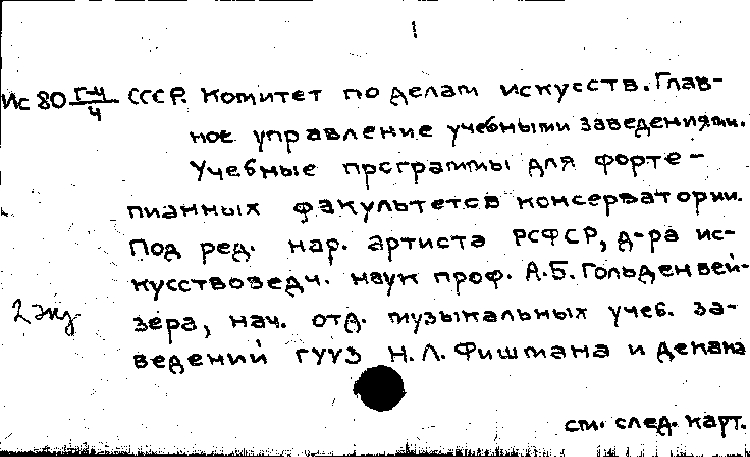 1
Ис 80 Г-Ч/Ч СССР. Комитет по делам искусств. Глав-
ное управление учебными заведениями.
Учебные программы для форте-
пианных факультетов консерватории.
Под ред. нар. артиста РСФСР, д-ра ис-
кусствоведч. наук проф. А.Б. Гольденвей-
2 экз
зера, нач. отд. музыкальных учеб. за-
ведений ГУУЗ Н.Л. Фишмана и декана
см. след. карт.